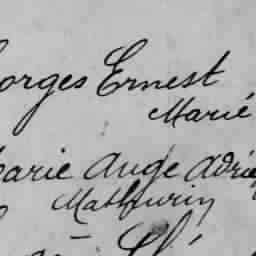 orges Ernest
Marié
arie Ange Adrie
Mathurin